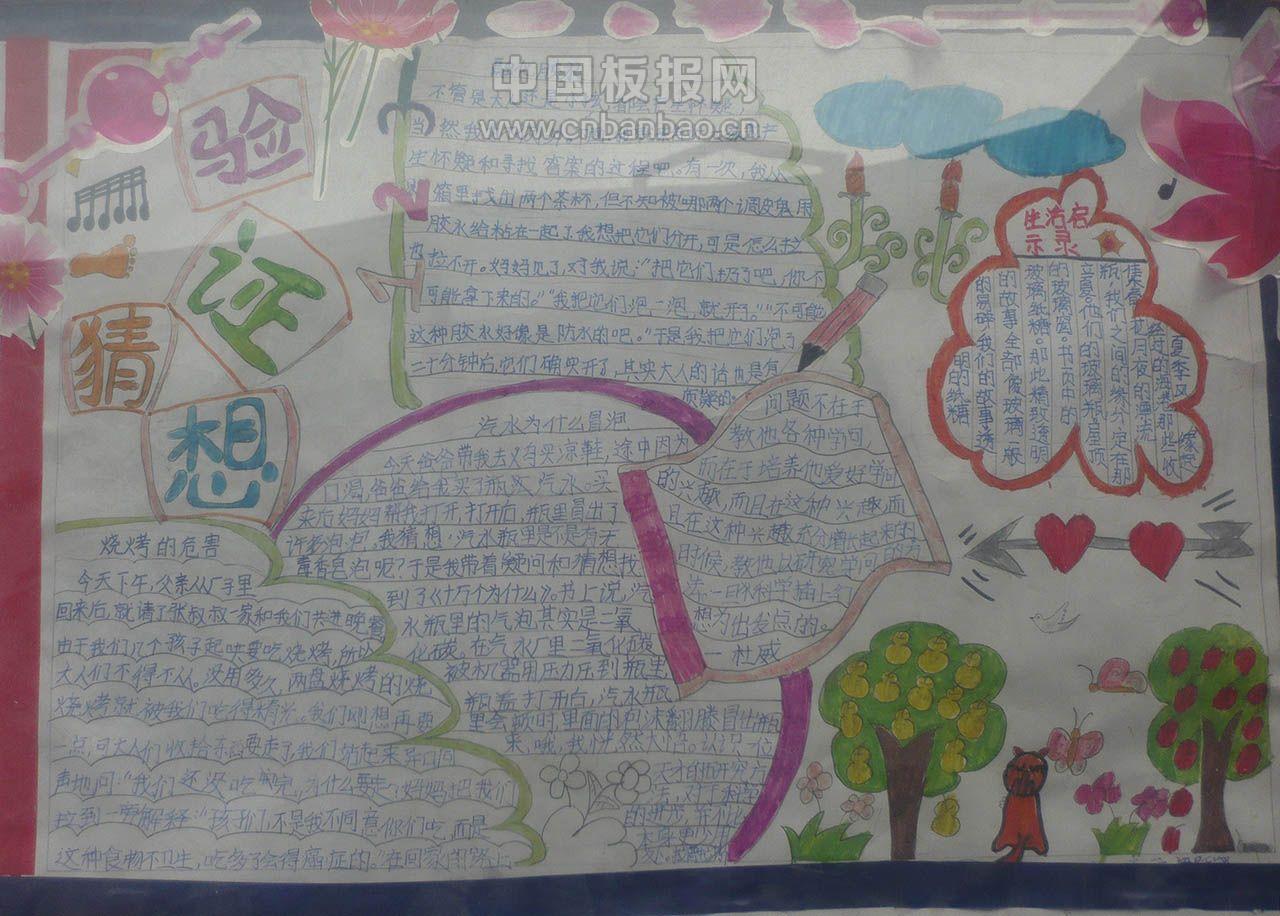 中国板报网
www.cnbanbao.cn
验
证
猜
想
1
2
3
不管是大
当然我
生怀疑和寻找答案的过程吧。有一次,我从
箱里找出两个茶杯,但不知被哪两个调皮鬼用
胶水给粘在一起了我想把他们分开,可是怎么
也拉不开。妈妈见了,对我说:“把它们扔了吧,你不
可能拿下来的。”“我把他们泡一泡,就开了。”“不可能
这种胶水好像是防水的吧。”于是我把它们泡了
二十分钟后,它们确实开了,其实大人的话也是有
质疑的。
汽水为什么冒泡
今天爸爸带我去义乌买凉鞋,途中因为
口渴,爸爸给我买了瓶汽水。买
来后妈妈帮我打开,打开后,瓶里冒出了
许多泡泡。我猜想:汽水瓶里是不是有无
色泡呢?于是我带着疑问和猜想找
到了《十万个为什么》。书上说,汽
水瓶里的气泡其实是二氧
化碳。在汽水厂里二氧化碳
被机器用压力压到瓶里
瓶盖打开后,汽水瓶
里会顿时里面的泡沫翻滚冒出瓶
来,哦,我恍然大悟。认识一位
天才的研究方
法,对于科学
的进步,并
问题不在于
教他各种学问,
而在于培养他爱好学问
的兴趣,而且在这种兴趣而
且在这种兴趣充分增长起来的
时候,教他以研究学问的方
法
想为出发点的。
—杜威
烧烤的危害
今天下午,父亲从厂子里
回来后,就请了张叔叔一家和我们共进晚餐
由于我们几个孩子起哄要吃烧烤,所以
大人们不得不从。没用多久,两盘烧烤的烧
烧烤就被我们吃得精光。我们刚想再要
一点,可大人们收拾东西要走了,我们站起来异口同
声地问:“我们还没吃完,为什么要走?”妈妈把我们
拉到一旁解释:“孩子们,不是我不同意你们吃,而是
这种食物不卫生,吃多了会得癌症的。”在回家的路上
生活启
示录
夏季风
经过的海港那些收
瓶,我们之间的缘分定在那
立意。他们的玻璃瓶屋顶
的玻璃窗。书页中的
玻璃纸糖。那些精致透明
的故事,全部像玻璃一般
的易碎,我们的故事透
明的纸糖